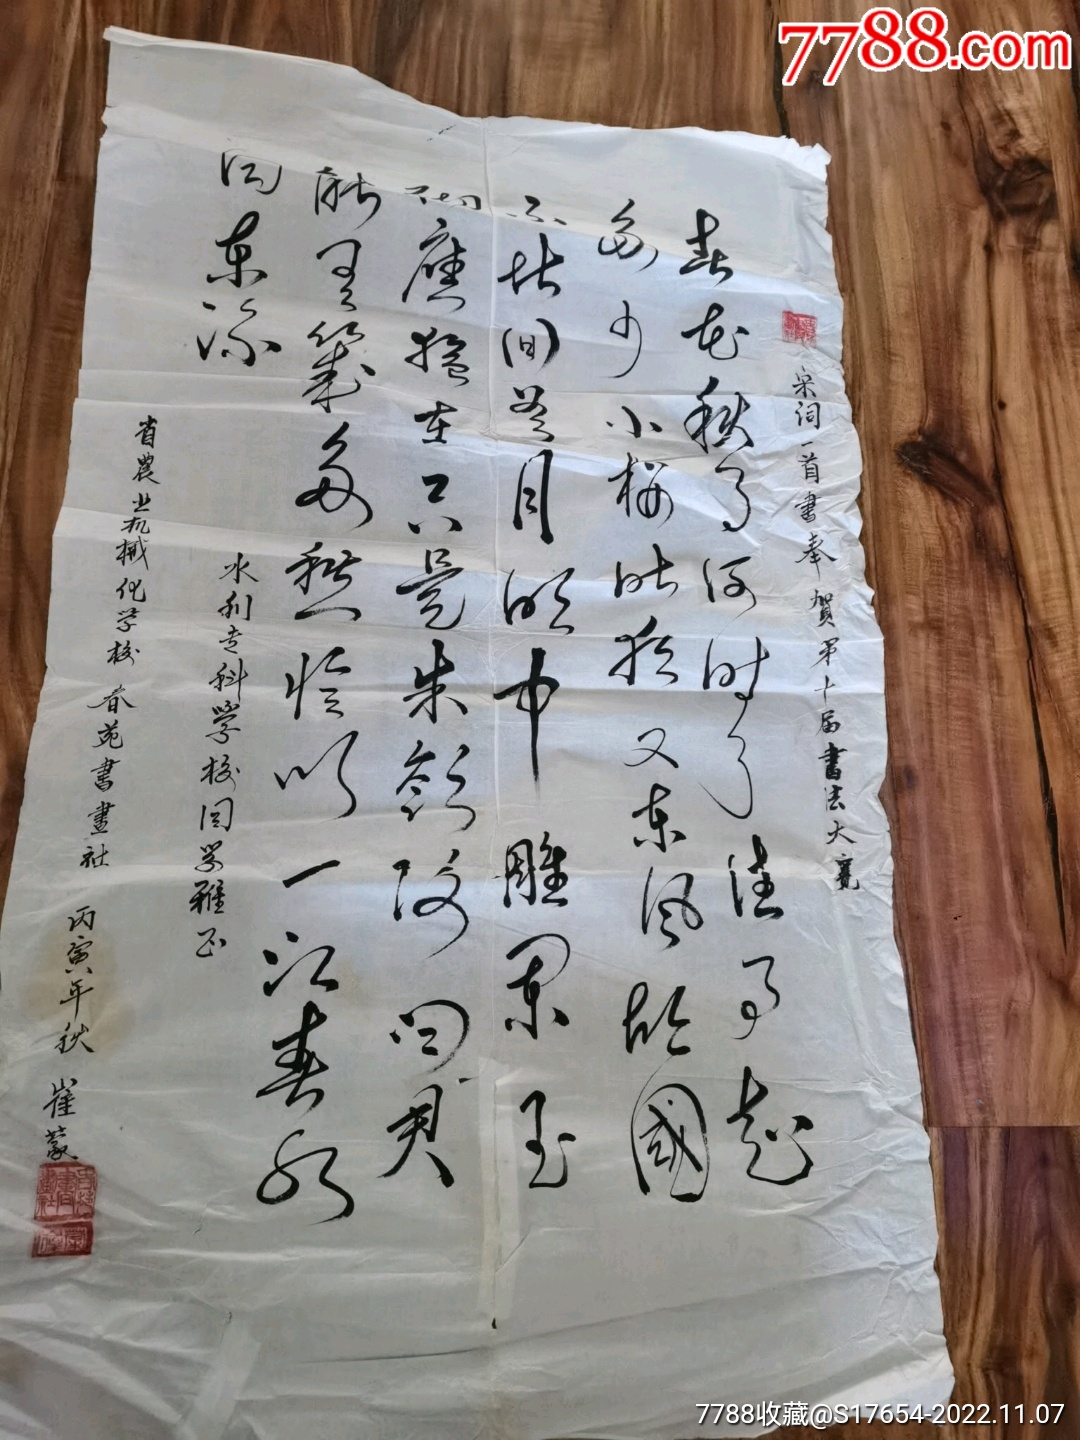 7788.com
宋词一首書奉贺第十届書法大赛
春花秋月何时了往事知
多少小楼昨夜又东风故國
不堪回首月明中雕阑玉
砌應猶在只是朱颜改问君
能有幾多愁恰似一江春水
向东流
水利专科学校同学雅正
省農业机械化学校 春苑書畫社 丙寅年秋 崔蒙
7788收藏@S17654-2022.11.07